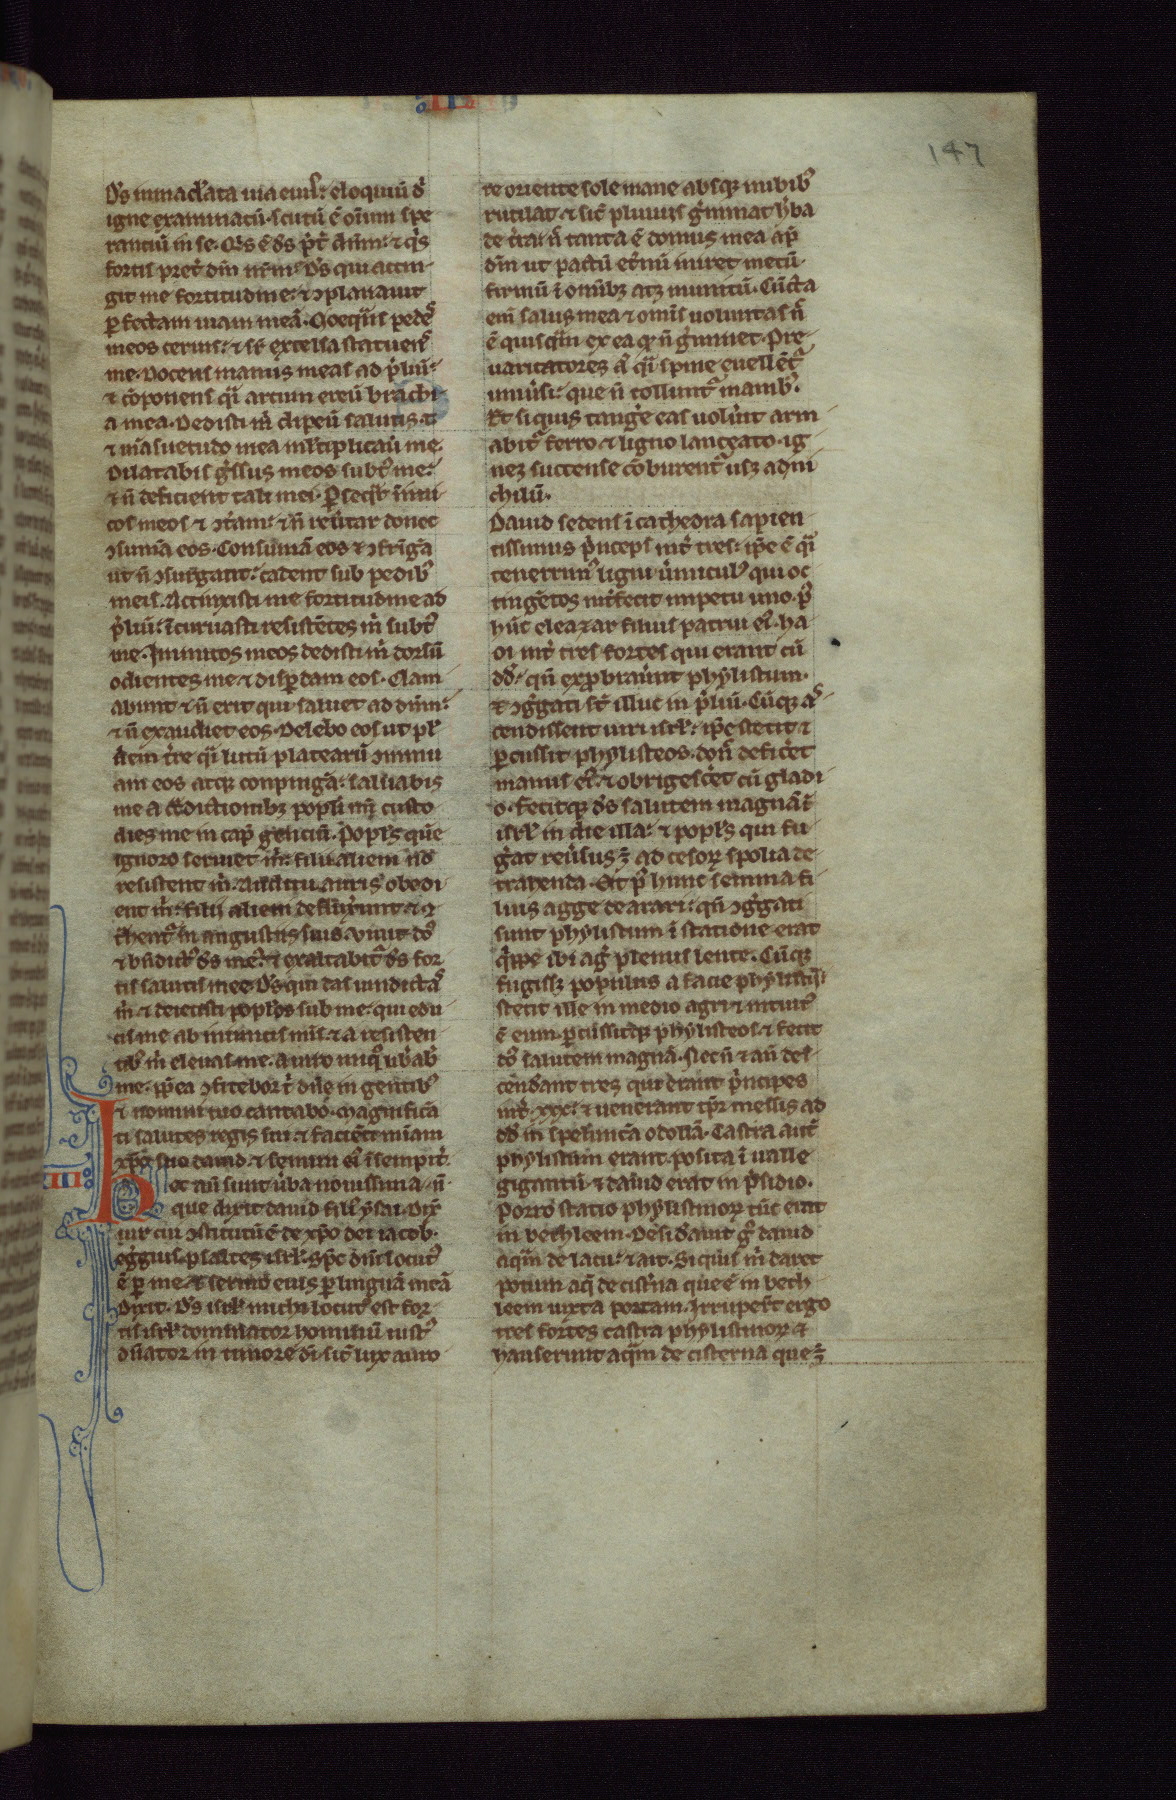 147
Ds inmaclata uia eius: eloquiū dn̄i
igne examinatū. scutū ē oīum spe
rantiū in se. Qs ē ds p̄t dn̄m: ⁊ qs
fortis pret̄ dm̄ nr̄m: Ds qui accin
git me fortitudine: ⁊ ꝯplanauit
ꝑfectam uiam meā. Coequās pedes
meos ceruis: ⁊ sr̄ excelsa statuens
me. Docens manus meas ad p̄liū:
⁊ cōponens qͣi arcum ereū brachi
a mea. Dedisti m̄ clipeū salutis t̄
⁊ māsuetudo mea ml̄tiplicauit me.
Dilatabis gͤssus meos subt̄ me:
⁊ n̄ deficient tali mei. ꝑseqr̄ inimi
cos meos ⁊ ꝯteram: ⁊ n̄ reūtar donec
ꝯsumā eos. Consumā eos ⁊ ꝯfringā
ut n̄ ꝯsurgant: cadent sub pedibꝰ
meis. Accinxisti me fortitudine ad
p̄liū: īcuruasti resistētes m̄ subtꝰ
me. Inimicos meos dedisti m̄ dorsū
odientes me ⁊ dispdam eos. Clam
abunt ⁊ n̄ erit qui saluet ad dn̄m:
⁊ n̄ exaudiet eos. Delebo eos ut pl
ūem t̄re qͣi lutū platearū ꝯminu
am eos atqꝫ conpingā: saluabis
me a ꝯtͣdictionibꝫ popli mei custo
dies me in capͮ gentiū. Popls que
ignoro seruiet m̄: filii alieni n̄
resistent m̄. Auditu auris obedi
ent m̄: filii alieni defluxerunt ⁊ ꝯ
thentͬ in angustiis suis. uiuit dn̄s
⁊ bn̄dictꝰ ds meꝰ: ⁊ exaltabitͬ ds for
tis salutis mee Ds qui das uindictas
m̄ ⁊ deiecisti poplos sub me. qui edu
cis me ab inimicis mīs ⁊ a resisten
tibꝰ m̄ eleuas me. a uiro iniqͦ liberabis
me. ꝓpea ꝯfitebor t̄ dn̄e in gentibꝰ
⁊ nomini tuo cantabo. Magnifica
ti salutes regis sui: ⁊ faciēti mīam
xp̄o suo dauid. ⁊ semini ei ī sempit̄.
Hec aū sunt ūba nouissima n̄
que dixit dauid filꝰ ysai. Dix̄
uir cui ꝯstitutū ē de xp̄o dei iacob.
egͤgius psaltes isrl. Spc dn̄i locutꝰ
ē ꝑ me ⁊ sermo eius ꝑ linguā meā
Dixit. Ds isrl michi locutꝰ est for
tis isrl dominator hominū iustꝰ
dn̄ator in timore dī. sic̄ lux auro
re oriente sole mane absqꝫ nubibꝰ
rutilat ⁊ sic̄ pluuiis gͤminat hͤba
de t̄ra: n̄ tanta ē domus mea apͩ
dm̄ ut pactū et̄nū iniret mecū
firmū ī omībꝫ atqꝫ munitū. Cūcta
em̄ salus mea ⁊ omīs uoluntas n̄
ē quisqͣm ex ea qͦ n̄ gͤminet. Pre
uaricatores aͮ qͣi spine euellētͬ
uniūsi: que n̄ tolluntͬ manibꝰ.
Et siquis tangͤe eas uolūit arm
abitͬ ferro ⁊ ligno lanceato. ig
neqꝫ succense cōburentͬ usqꝫ ad ni
chilū.
Dauid sedens ī cathedra sapien
tissimus pͥnceps int̄ tres: ip̄e ē qͣi
tenerrimꝰ ligni ūmiculꝰ qui oc
tingētos int̄fecit impetu uno. pͦ
hūc eleazar filius patrui eiꝰ. ha
oi int̄ tres fortes qui erant cū
dd: qn̄ exprobrauūt phylistiim.
⁊ ꝯgͤgati st̄ illuc in p̄liū. Cūqꝫ as
cendissent uiri isrl: ip̄e stetit ⁊
ꝑcussit phylisteos. don̄ deficēt
manus eiꝰ ⁊ obrigescēt cū gladi
o. fecitqꝫ ds salutem magnā ī
isrl in die illa: ⁊ popls qui fu
gͤat reūsus ꝫ ad cesorꝝ spolia de
trahenda. Et pͦ hunc semma fi
lius agge de arari: qn̄ ꝯgͤgati
sunt phylistiim ī statione erat
qͥppe ibi agͤ plenus lente. Cūqꝫ
fugissꝫ populus a facie phylistiī
stetit ille in medio agri ⁊ intuitꝰ
ē eum. ꝑcussitqꝫ phylisteos ⁊ fecit
ds salutem magnā. Necn̄ ⁊ aū des
cēdant tres qui erant pͥncipes
int̄ xxx. ⁊ uenerant tpr̄ messis ad
dd in spelūcā odollā. Castra aut̄
phylistiim erant posita ī ualle
gigantū ⁊ dauid erat in p̄sidio.
Porro statio phylistinorꝝ tūc erat
in bethleem. Desidauit gͦ dauid
aqͣm de lacu: ⁊ ait. Si qͥs m̄ daret
potum aqͣ de cistͤna que ē in beth
leem iuxta portam. Irrupert̄ ergo
tres fortes castra phylistinorꝝ ⁊
hauserunt aqͣm de cisterna que ꝫ